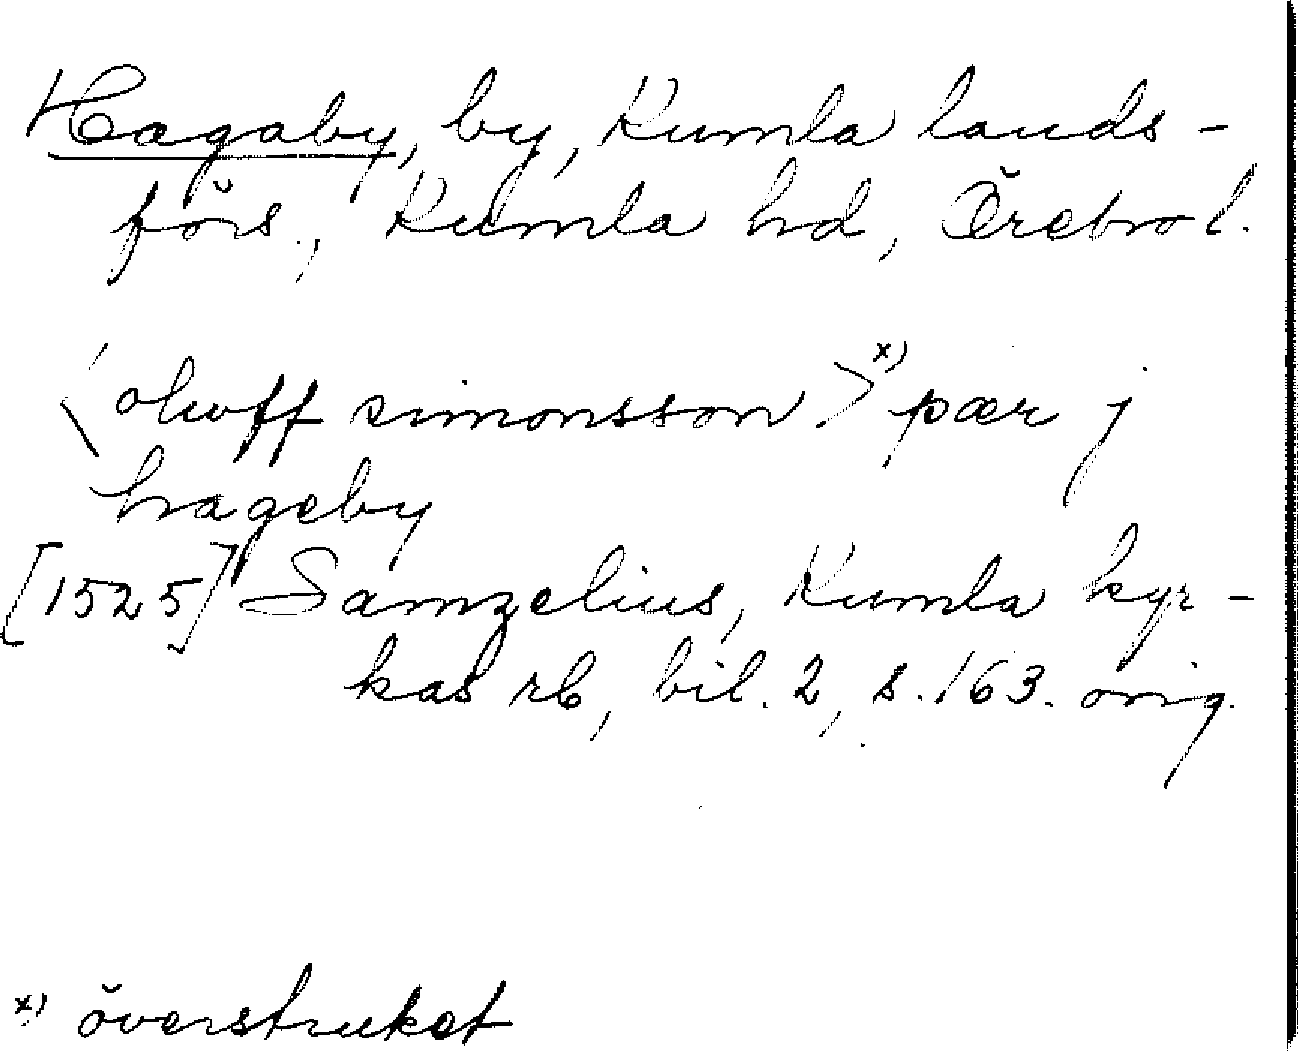 Hagaby, by, Kumla lands-
förs., Kumla hd, Örebro l.
<olwff simonsson>x) pær j
hageby
[1525] Samzelius, Kumla kyr-
kas rb, bil. 2, s. 163. orig.
x) överstruket